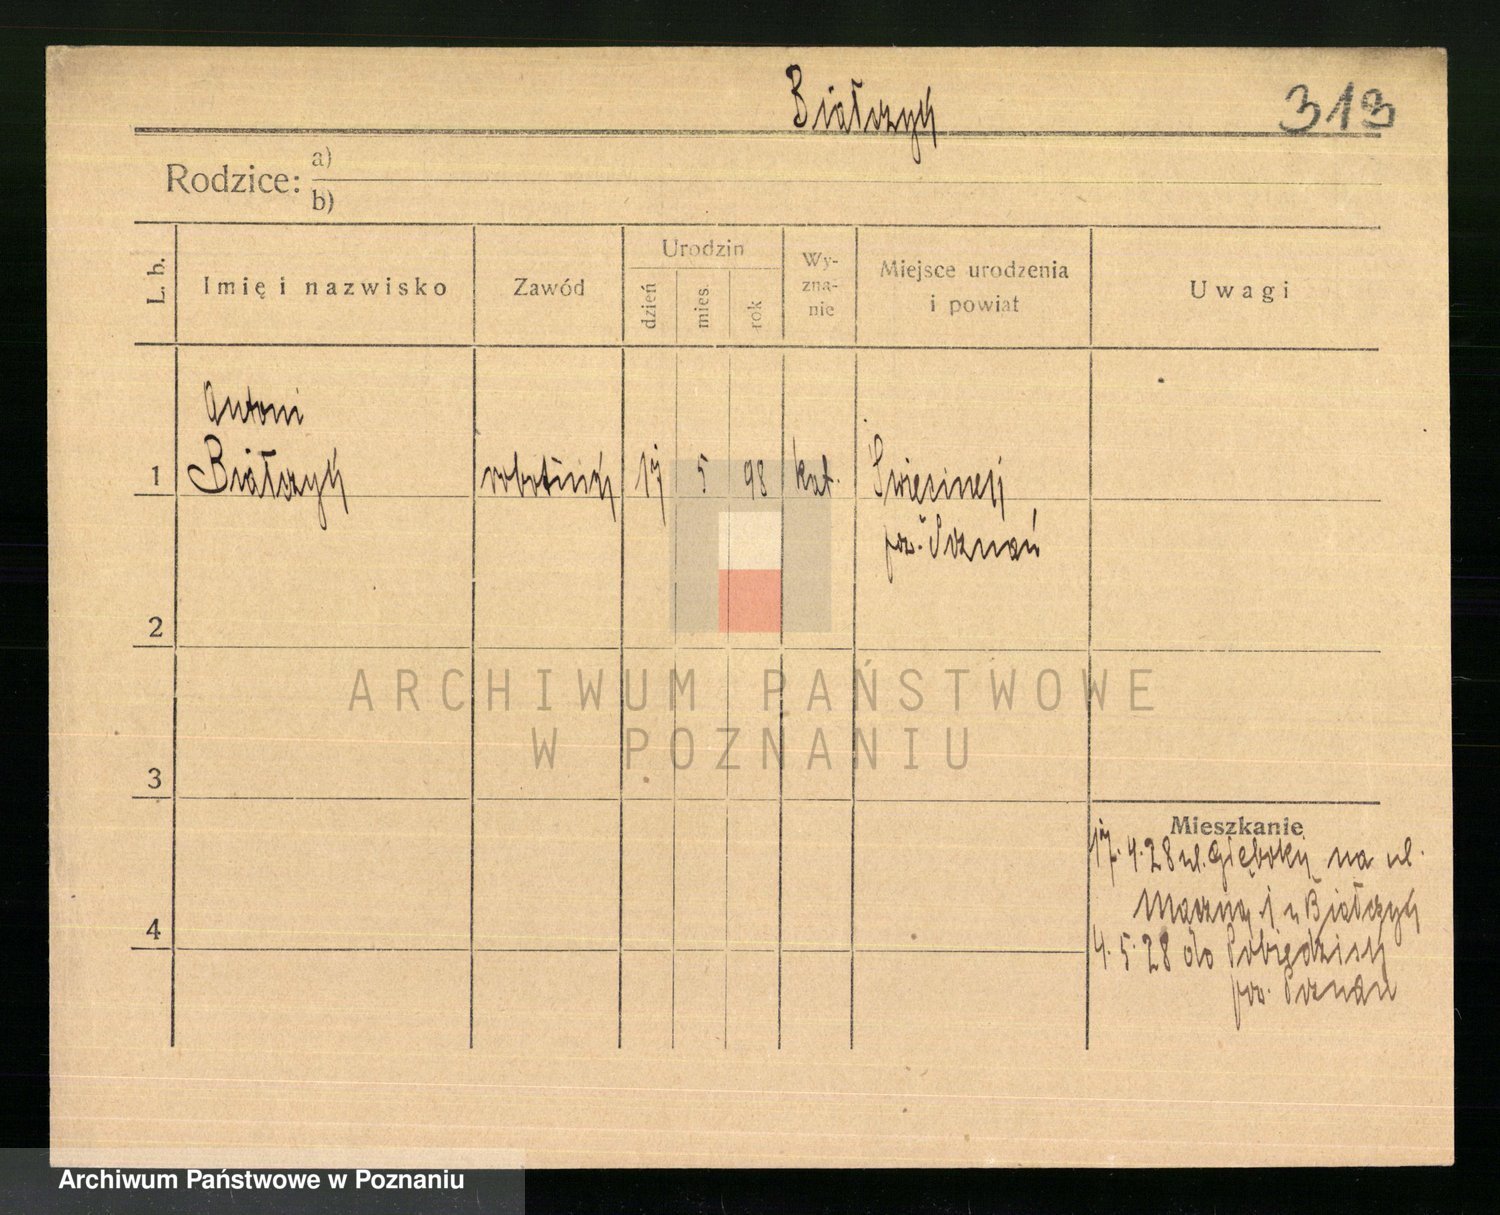 Białczyk
313
Rodzice: a)
b)
L. b.
Imię i nazwisko
Zawód
Urodzin
dzień
mies.
rok
Wy-
zna-
nie
Miejsce urodzenia
i powiat
Uwagi
Antoni
1 Białczyk robotnik 17 5 98 kat.
pow. Poznań
2
ARCHIWUM PAŃSTWOWE
W POZNANIU
3
Mieszkanie
17. 4. 28 ul. Głęboka na ul.
Białczyk
4
4. 5. 28 do
pow. Poznań
Archiwum Państwowe w Poznaniu